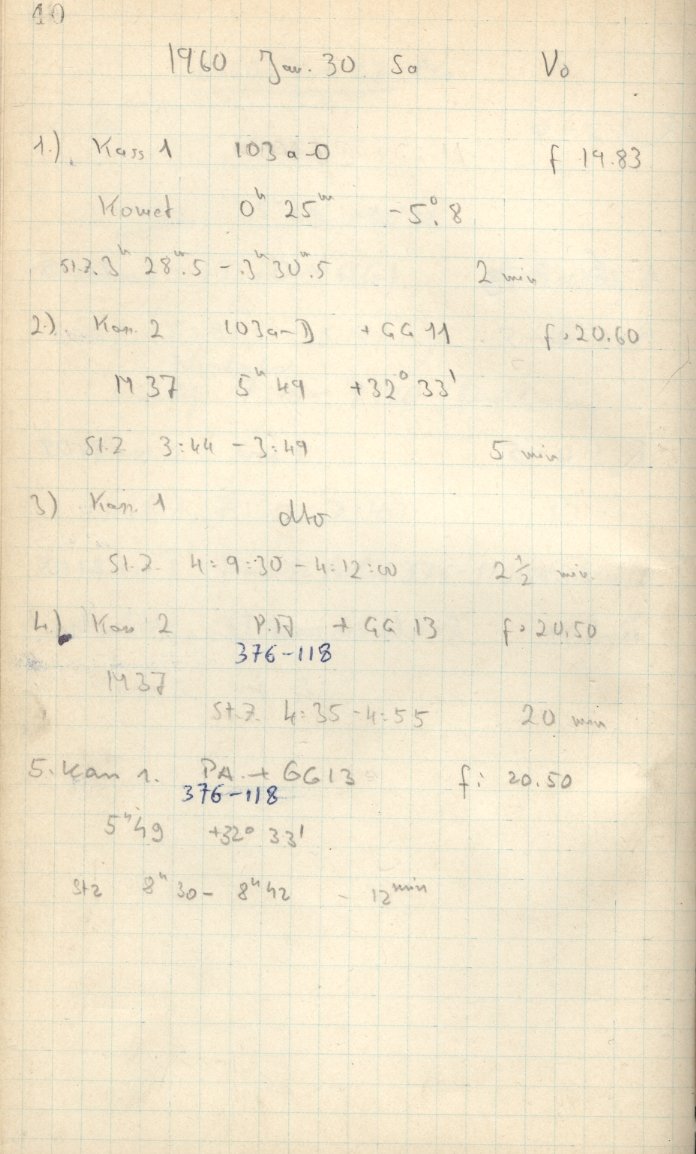 40
1960 Jan. 30 Sa Vo
1.) Kass 1 103 a-O f 19.83
Komet 0ʰ 25ᵐ -5°.8
St.Z. 3ʰ 28ᵐ.5 - 3ʰ 30ᵐ.5 2 min
2.) Kass. 2 103a-D + GG 11 f: 20.60
M 37 5ʰ 49 +32° 33'
St.Z 3:44 - 3:49 5 min
3) Kass. 1 dto
St.Z. 4:9:30 - 4:12:00 2 1/2 min.
4.) Kass 2 + GG 13 f: 20.50
376-118
M37
St.Z. 4:35-4:55 20 min
5. Kass 1. PA. + GG13 f: 20.50
376-118
5ʰ49 +32° 33'
StZ 8ʰ 30 - 8ʰ 42 - 12ᵐⁱⁿ